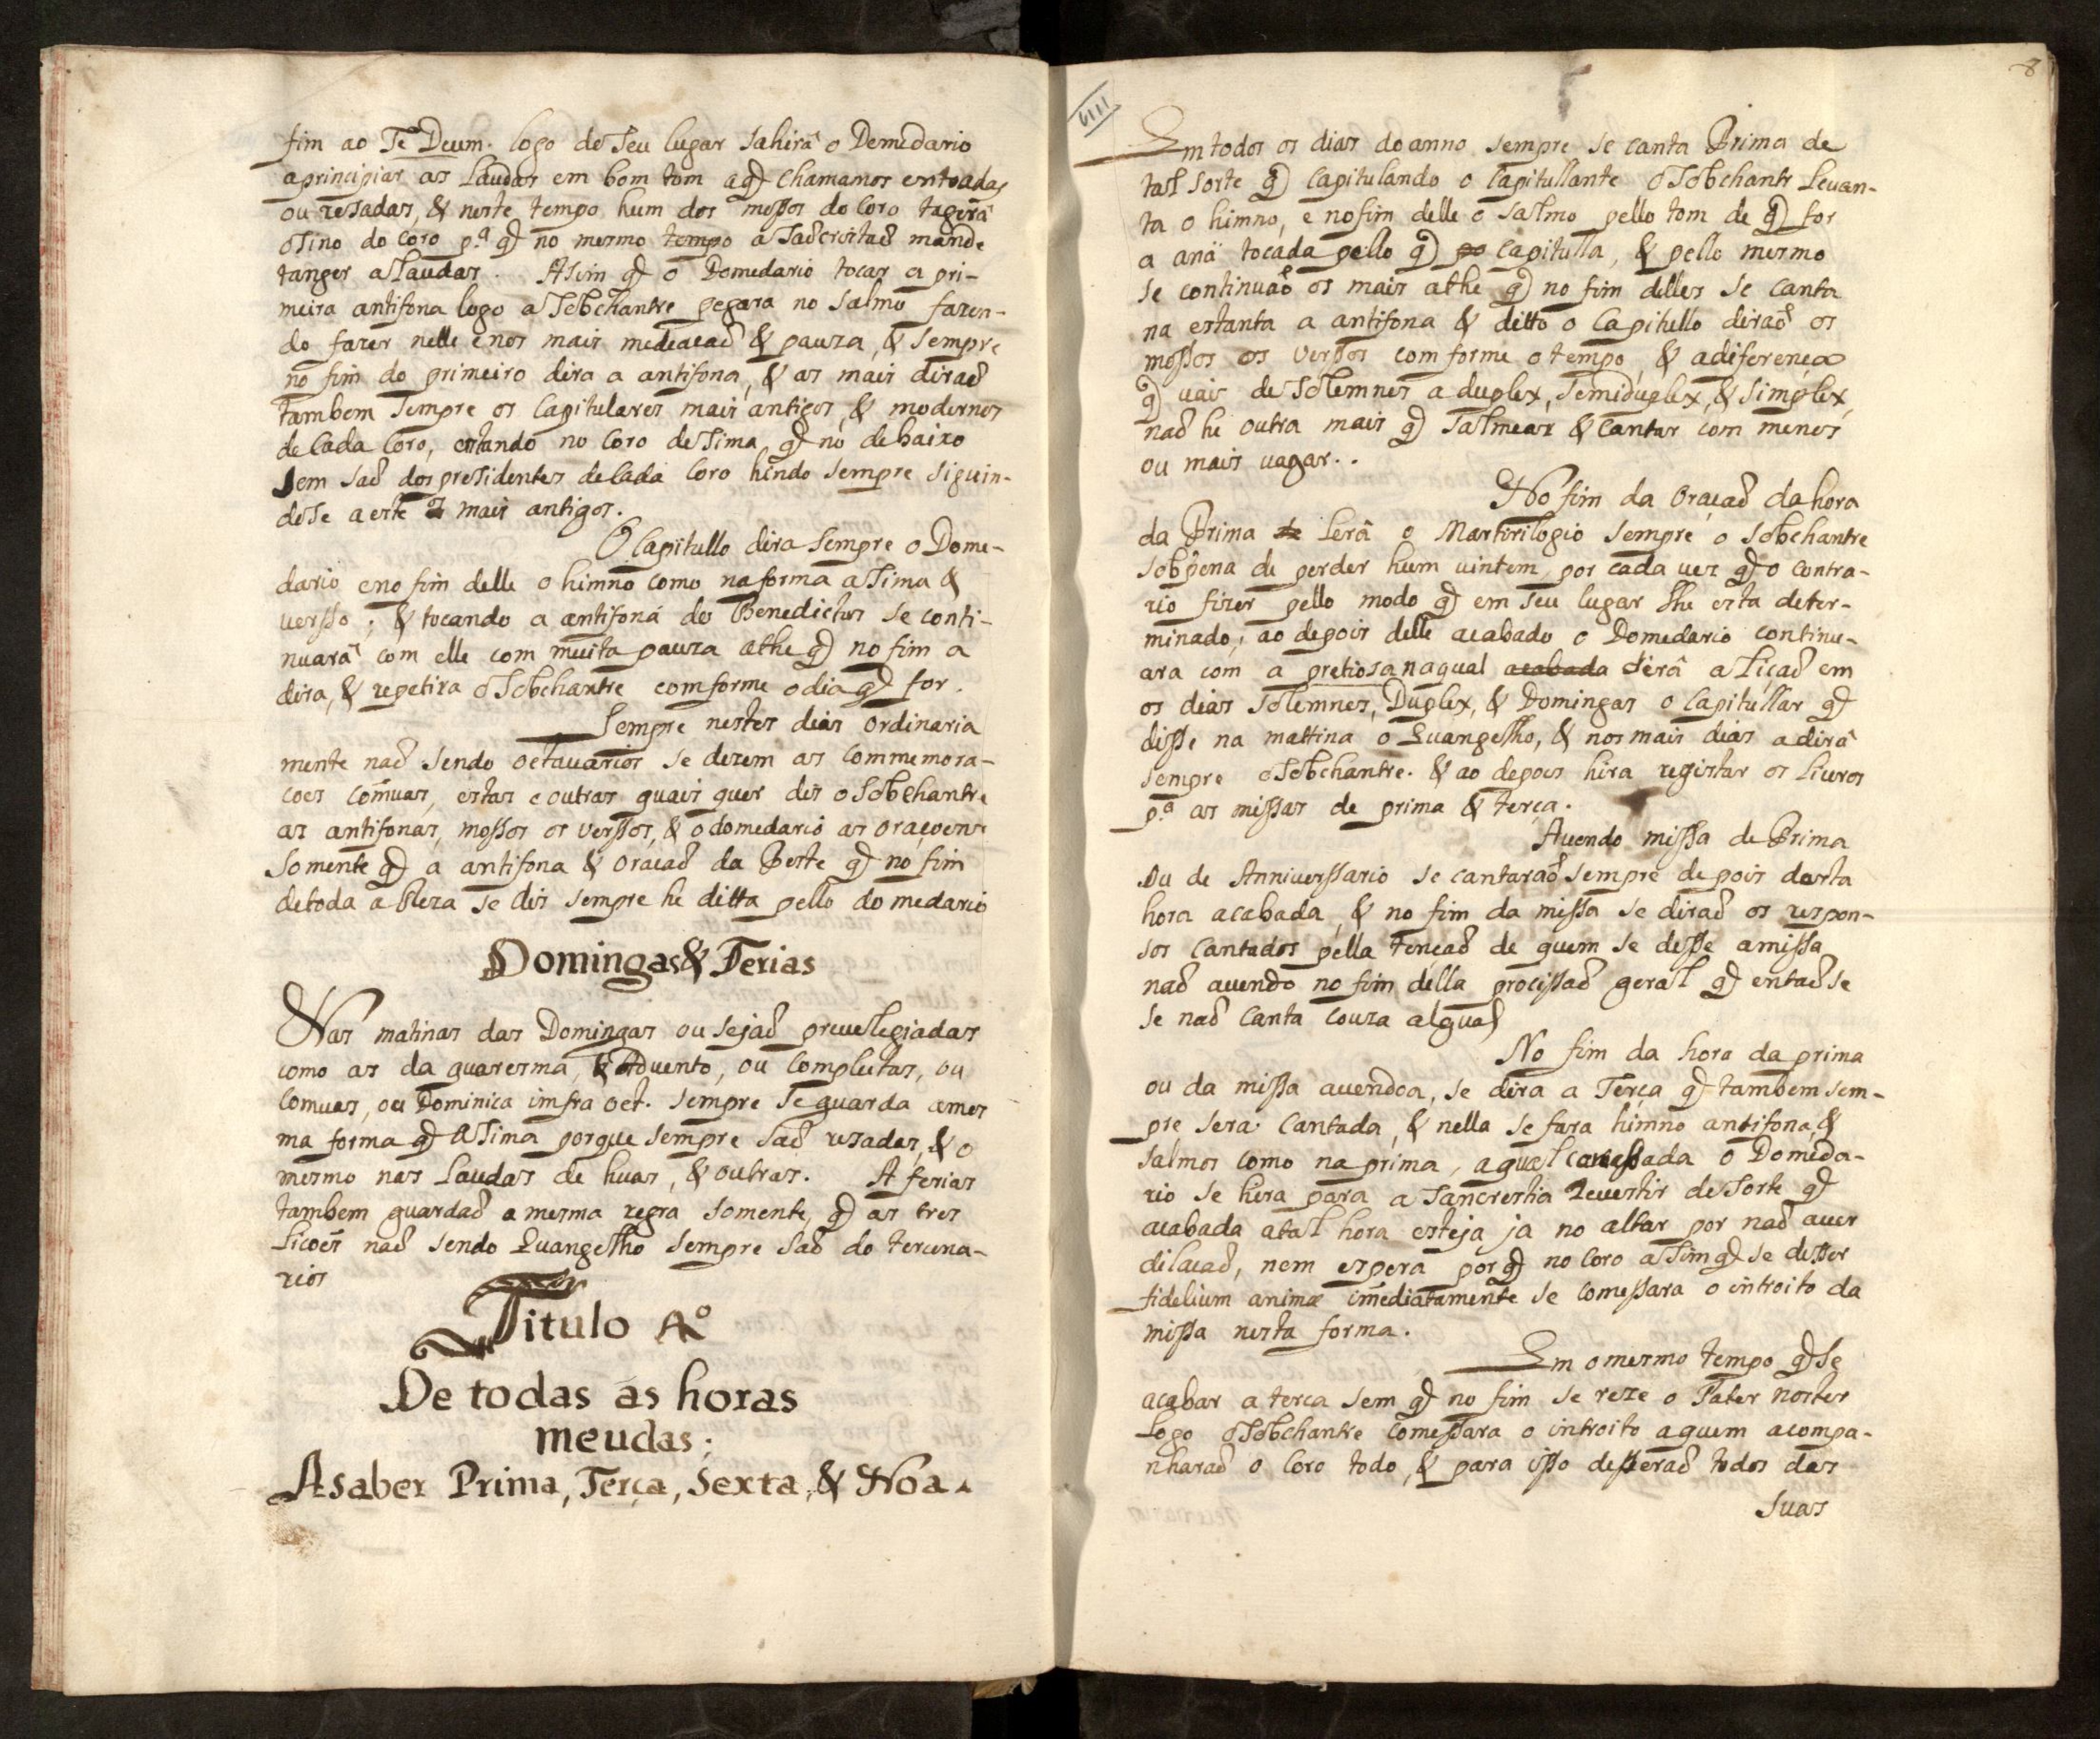 fim ao Te Deum. logo do seu lugar sahirâ o Domedario
aprincipiar as Laudas em bom tom aq̃ chamamos entoadas
ou resadas, & neste tempo hum dos mossos do Coro tagerâ
o sino do coro p.ª q̃ no mesmo tempo a Sachristaõ mande
tanger a Laudas. Asim q̃ o Domedario tocar a pri-
meira antifona logo a Sobchantre pegara no salmo fazen-
do fazer nelle enos mais mediacaõ & pauza, & sempre
no fim do primeiro dira a antifona, & as mais diraõ
tambem sempre os Capitulares mais antigos, & modernos
de Cada Coro, estando no Coro de sima, q̃ no debaixo
sem saõ dos presidentes de Cada Coro hindo sempre siguin-
dose a este os mais antigos.
O Capitullo dira sempre o Dome-
dario eno fim delle o himno como na forma a sima &
versso; & tocando a antifona do Benedictus se conti-
nuarâ com elle com muita pauza athe q̃ no fim a
dira, & repetira o Sobchantre comforme o dia q̃ for.
Sempre nestes dias ordinaria
mente naõ sendo octauarios se dizem as Commemora-
coes com̃uas, estas e outras quais quer dis o Sobchantre
as antifonas, mossos os verssos, & o domedario as oraçoens
somente q̃ a antifona & oracaõ da Peste q̃ no fim
detoda a Reza se dis sempre he ditta pello domedario
Domingas & Ferias
Nas matinas das Domingas ou sejaõ preuelegiadas
como as da quaresma, & Aduento, ou Complutas, ou
Comuas, ou Dominica imfra oct. sempre se guarda ames
ma forma q̃ asima porque sempre saõ resadas, & o
mesmo nas Laudas de huas, & outras. A ferias
tambem guardaõ a mesma regra somente, q̃ as tres
Licoẽs naõ sendo Euangelho sempre saõ do tercena-
rios
Titulo 4º
De todas as horas
meudas;
Asaber Prima, Terça, Sexta, & Noa.
8
Em todos os dias do anno sempre se canta Prima de
tal sorte q̃ Capitulando o Capitullante o Sobchantr Leuan-
ta o himno, e no fim delle o salmo pello tom de q̃ for
a anã tocada pello q̃ po capitulla, & pello mesmo
se continuaõ os mais athe q̃ no fim delles se canta
na estanta a antifona & ditto o Capitullo diraõ os
mossos os verssos comforme o tempo, & adiferença
q̃ vais de Solemnes a duplex, semiduplex, & simplex,
naõ he outra mais q̃ salmear & Cantar com menos
ou mais uagar..
No fim da oraçaõ da hora
da Prima se Lerâ o Martirilogio sempre o Sobchantre
sobpena de perder hum uintem por cada vez q̃ o contra-
rio fizer pello modo q̃ em seu lugar lhe esta deter-
minado; ao depois delle acabado o Domedario continu-
ara com a pretiosa naqual acabada serâ a Liçaõ em
os dias solemnes, Duplex, & Domingas o Capitullar q̃
disse na mattina o Euangelho, & nos mais dias adirâ
sempre o Sobchantre. & ao depois hira registar os Liuros
p.ª as missas de prima & terça.
Auendo missa de Prima
Ou de Anniuerssario se cantaraõ sempre depois desta
hora acabada, & no fim da missa se diraõ os respon-
sos cantados pella tençaõ de quem se disse a missa
naõ auendo no fim della procissaõ geral q̃ entaõ se
se naõ Canta couza algua
No fim da hora da prima
ou da missa auendoa, se dira a Terça q̃ tambem sem-
pre sera Cantada, & nella se fara himno antifona, &
salmos como na prima, aqual começsada o Domeda-
rio se hira para a Sancrestia Reuestir de sorte q̃
acabada atal hora esteja ja no altar por naõ auer
dilacaõ, nem espera porq̃ no Coro asim q̃ se disser
fidelium animæ im̃ediatamente se comessara o introito da
missa nesta forma.
Em o mesmo tempo q̃ se
acabar a terca sem q̃ no fim se reze o Pater noster
Logo o Sobchantre Comessara o introito aquem acompa-
nharaõ o Coro todo, & para isso desseraõ todos das
suas